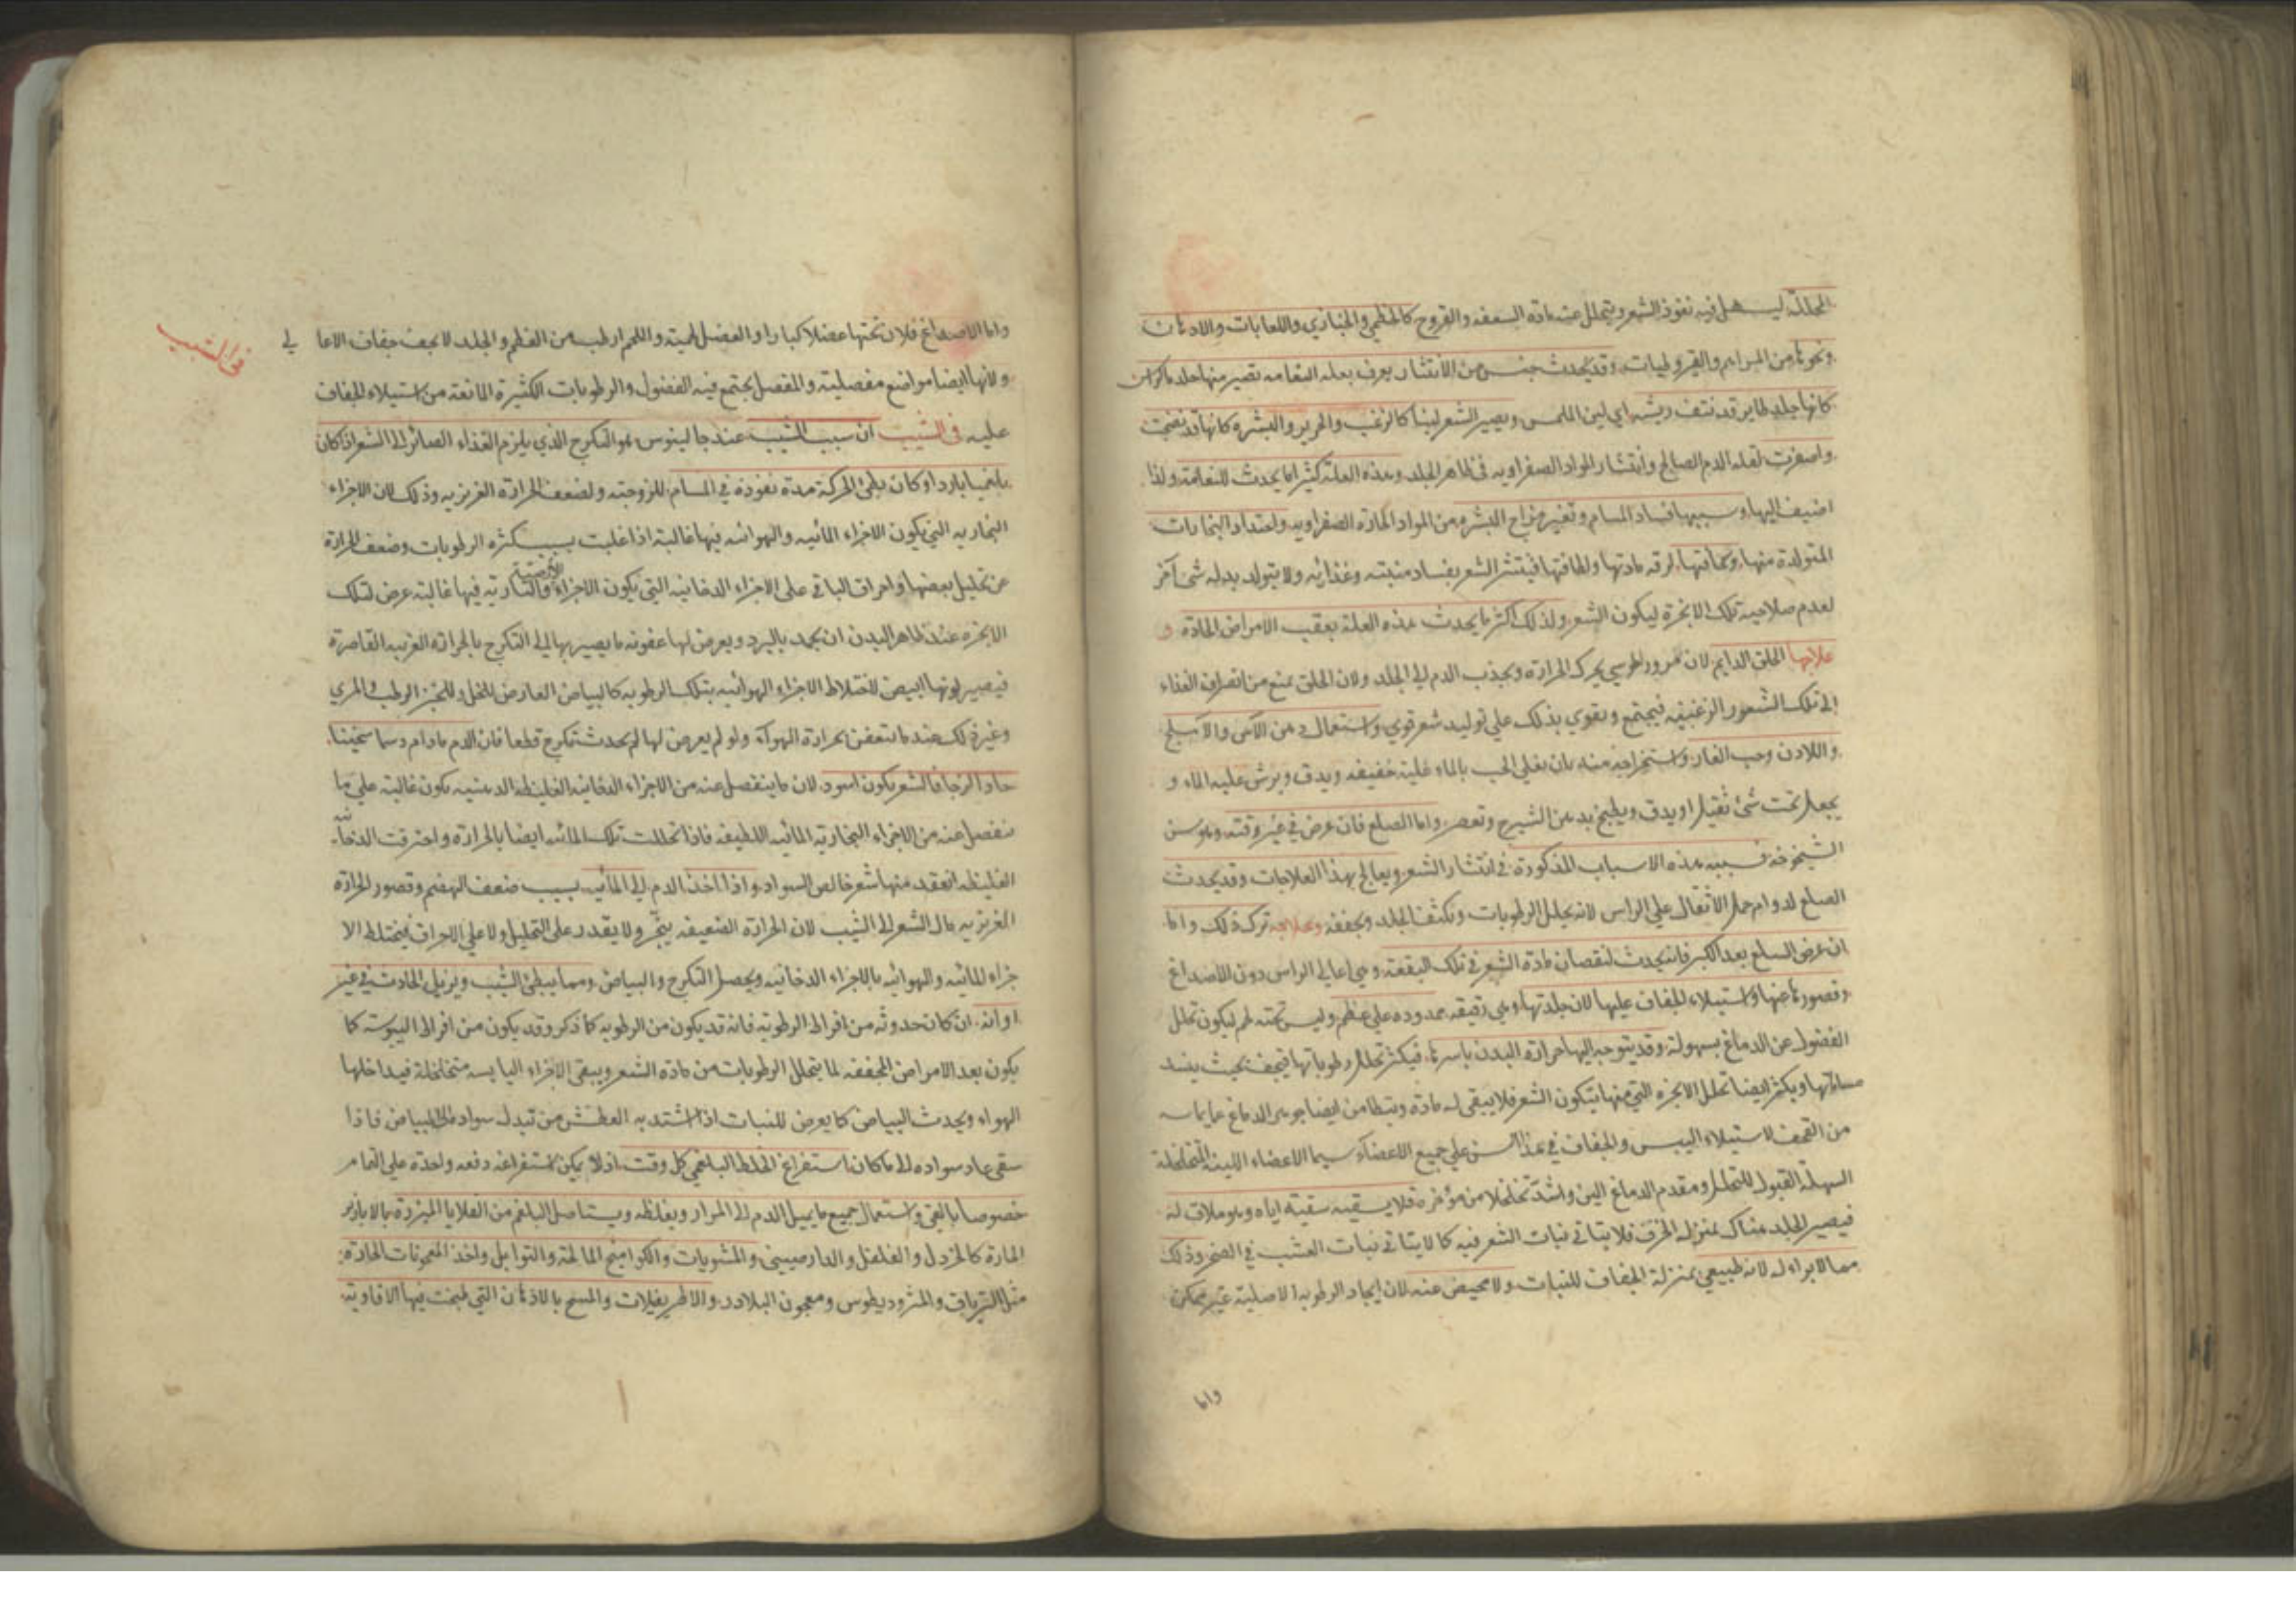 المحللة ليسهل فيه نفوذ الشعر ويتحلل عنه مادة السعفه والقروح كالخطمي والخبازي واللعابات والادهان
ونحوها من المراهم والقيروطيات وقد يحدث جنس من الانتشار يعرف بعلة النعامه تصير منها جلدة الراس
كانها جلد طاير قد نتف ريشه اي لين الملمس ويصير الشعر لينا كالزغب والحرير والبشرة كانها قد نضجت
واصفرت لقله الدم الصالح وانتشار المواد الصفراويه في ظاهر الجلد وهذه العلة كثيرا ما يحدث للنعامة ولذا
اضيف اليها وسببها فساد المسام وتغير مزاج البشره من المواد الحادة الصفراويه واحتداد البخارات
المتولدة منها لرقه مادتها ولطافتها فينتثر الشعر بفساد منبته وغذائه ولا يتولد بدله شئ آخر
لعدم صلاحية تلك الابخرة ليكون الشعر ولذلك اكثر ما يحدث هذه العلة بعقب الامراض الحادة و
علاجها الحلق الدايم لان مرور الموسي يحرك الحرارة ويجذب الدم الى الجلد ولان الحلق يمنع من انصراف الغذاء
الى تلك الشعور الزغبيه فيجتمع ويقوي بذلك على توليد شعر قوي واستعمال دهن الآس والاملج
واللادن وحب الغار واستخراجه منه بان يغلى الحب بالماء غلية خفيفه ويدق ويرش عليه الماء و
يجعل تحت شئ ثقيل او يدق ويطبخ بدهن الشيرج وتعصر واما الصلع فان عرض في غير وقته وهو سن
الشيخوخه فسببه هذه الاسباب المذكورة في انتشار الشعر ويعالج بهذا العلاجات وقد يحدث
الصلع لدوام حمل الاثقال على الراس لانه يحلل الرطوبات ويكثف الجلد ويجففه وعلاجه ترك ذلك واما
ان عرض الصلع بعد الكبر فانه يحدث لنقصان مادة الشعر في تلك البقعة وهي اعالي الراس دون الاصداغ
وقصورها عنها واستيلاء الجفاف عليها لان جلدتها وهي رقيقه ممدوده على عظم وليس تحته لحم ليكون تحلل
الفضول عن الدماغ بسهولة وقد يتوجه اليها حرارة البدن باسرها فيكثر تحلل رطوباتها فيجف بحيث ينسد
مسامها ويكثر ايضا تحلل الابخره التي منها يتكون الشعر فلا يبقى له مادة ويتطامن ايضا جوهر الدماغ عما يماسه
من القحف لاستيلاء اليبس والجفاف في هذا السن على جميع الاعضاء سيما الاعضاء اللينة المتخلخلة
السهلة القبول للتحلل ومقدم الدماغ الين واشد تخلخلا من مؤخره فلا يسقيه سقيه اياه وهو ملاق له
فيصير الجلد هناك بمنزله الخزف فلا يتاتى نبات الشعر فيه كما لا يتاتى نبات العشب في الصخر وذلك
مما لا براء له لانه طبيعي بمنزلة الجفاف للنبات ولا محيص عنه لان ايجاد الرطوبه الاصلية غير ممكن
واما
واما الاصداغ فلان تحتها عضلا كبارا والعضل لحمية واللحم ارطب من العظم والجلد لا يجف جفاف الاعالي
ولانها ايضا مواضع مفصلية والمفصل يجتمع فيه الفضول والرطوبات الكثيرة المانعة من استيلاء الجفاف
عليه في الشيب ان سبب الشيب عند جالينوس هو التكرج الذي يلزم الغذاء الصائر الى الشعر اذ كان
بلغميا باردا وكان بطئ الحركة مدة نفوذه في المسام للزوجته ولضعف الحرارة الغريزيه وذلك لان الاجزاء
البخاريه التي يكون الاجزاء المائيه والهوائيه فيها غالبة اذا غلبت بسبب كثرة الرطوبات وضعف الحرارة
عن تحليل بعضها واحراق الباقي على الاجزاء الدخانيه التي يكون الاجزاء الارضية والناريه فيها غالبة عرض لتلك
الابخرة عند ظاهر البدن ان يجمد بالبرد ويعرض لها عفونه ما يصير بها الى التكرج بالحرارة الغريبه القاصرة
فيصير لونها ابيض لاختلاط الاجزاء الهوائيه بتلك الرطوبه كالبياض العارض للخل وللخبز الرطب والمري
وغير ذلك عند ما تتعفن بحرارة الهواء ولو لم يعرض لها لم يحدث تكرج قطعا فان الدم ما دام دسما سخينا
حادا لزجا فالشعر يكون اسود لان ما ينفصل عنه من الاجزاء الدخانيه الغليظه الدهنيه يكون غالبة على ما
ينفصل عنه من الاجزاء البخاريه المائيه اللطيفه فاذا تحللت تلك المائيه ايضا بالحرارة واحترقت الدخانية
الغليظه انعقد منها شعر خالص السواد واذا اخذ الدم الى المائيه بسبب ضعف الهضم وقصور الحرارة
الغريزيه مال الشعر الى الشيب لان الحرارة الضعيفه يبخر ولا يقدر على التحليل ولا على الاحراق فيختلط الا
جزاء المائيه والهوائيه بالاجزاء الدخانيه ويحصل التكرج والبياض ومما يبطئ الشيب ويزيل الحادث في غير
اوانه ان كان حدوثه من افراط الرطوبة فانه قد يكون من الرطوبه كما ذكر وقد يكون من افراط اليبوسة كما
يكون بعد الامراض المجففه لما يتحلل الرطوبات من مادة الشعر ويبقى الاجزاء اليابسه متخلخلة فيداخلها
الهواء ويحدث البياض كما يعرض للنبات اذا اشتد به العطش من تبدل سواده الى البياض فاذا
سقى عاد سواده الى ما كان استفراغ الخلط البلغمي كل وقت اذ لا يمكن استفراغه دفعه واحدة على التمام
خصوصا بالقي واستعمال جميع ما يميل الدم الى المرار ويغلظه ويستاصل البلغم من القلايا المبزرة بالابازير
الحارة كالخردل والفلفل والدارصيني والمشويات والكواميخ المالحة والتوابل واخذ المعجونات الحادة
مثل الترياق والمثروديطوس ومعجون البلادر والاطريفلات والمسح بالادهان التي طبخت فيها الافاويه
في الشيب